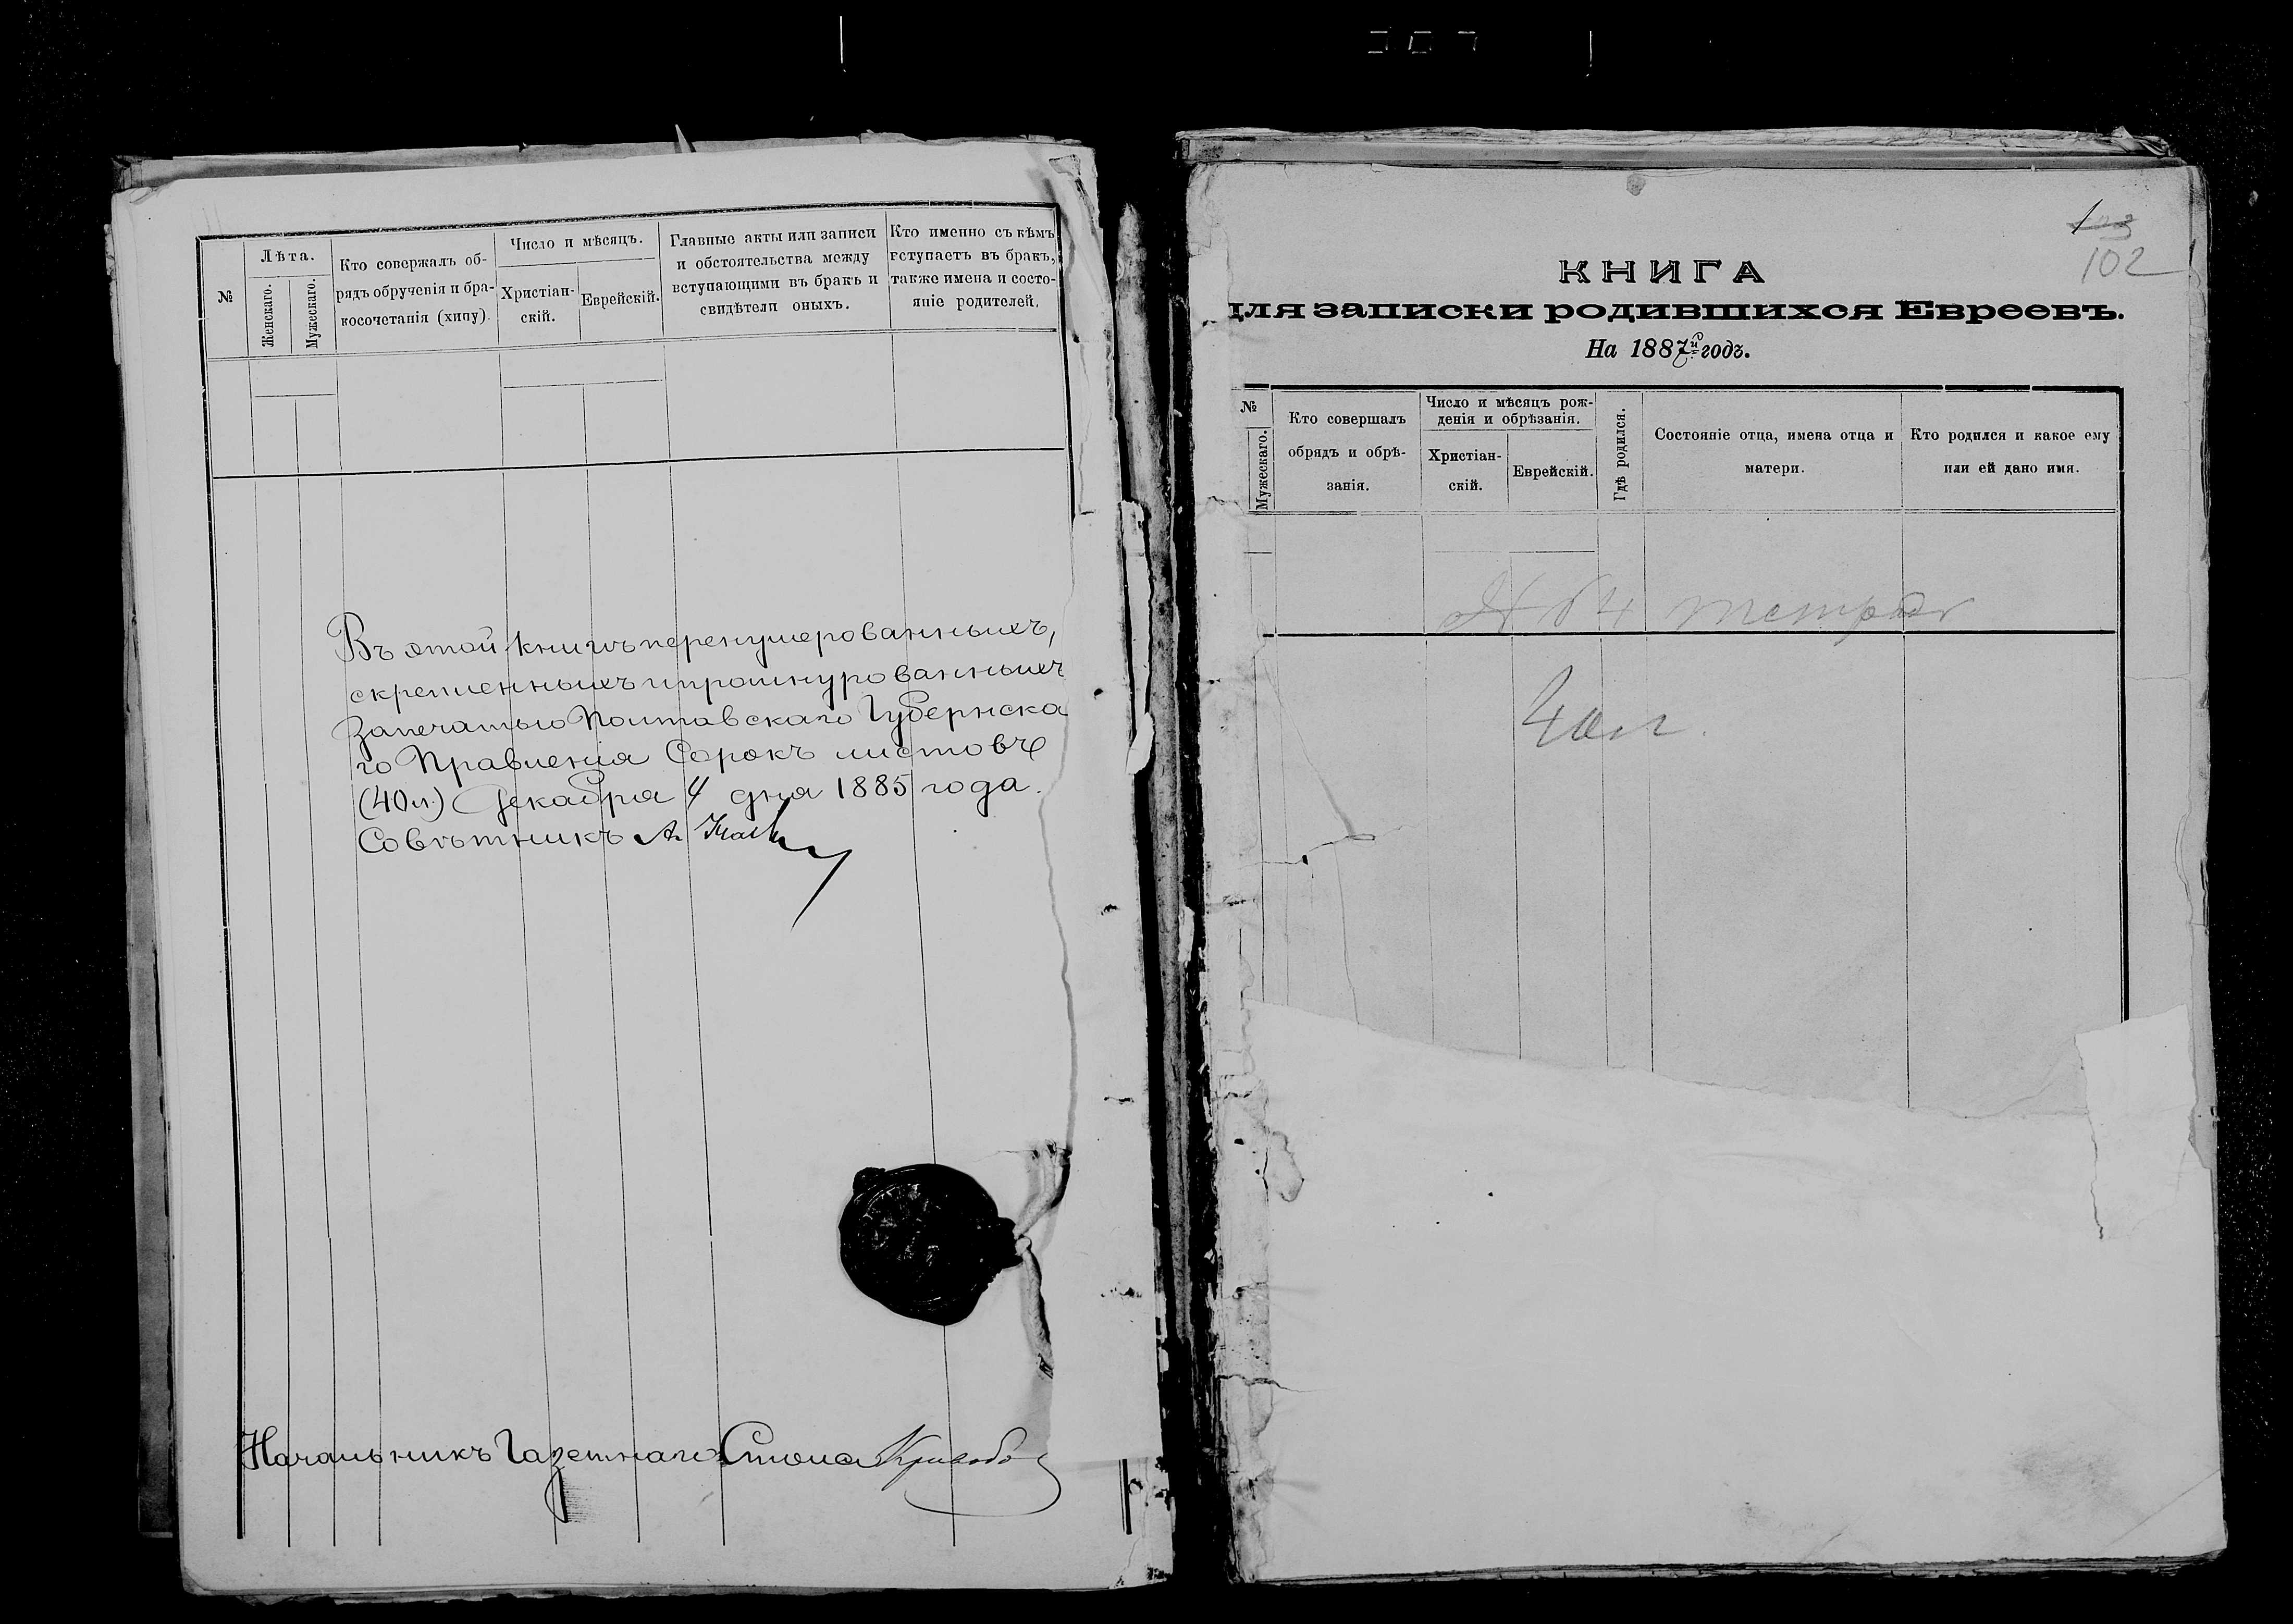 №
Лѣта.
Женскаго.
Мужескаго.
Кто совержалъ об-
рядъ обрученія и бра-
косочетанія (хипу).
Число и мѣсяцъ.
Христіан-
скій.
Еврейскій.
Главные акты или записи
и обстоятельства между
вступающими въ бракъ и
свидѣтели оныхъ.
Кто именно съ кѣмъ
вступаетъ въ бракъ,
также имена и состо-
яніе родителей.
Въ этой книгѣ перенумерованныхъ,
скрепленныхъ и прошнурованныхъ
За печатью Полтавскаго Губернска
го Правленія Сорокъ листовъ
(40 л.) Декабря 4 дня 1885 года.
Совѣтникъ А.
Начальникъ Газетнаго Стола
103
102
КНИГА
для записки родившихся Евреевъ.
На 1887й годъ.
№
Мужескаго.
Кто совершалъ
обрядъ и обрѣ-
занія.
Число и мѣсяцъ рож-
денія и обрѣзанія.
Христіан-
скій.
Еврейскій.
Гдѣ родился.
Состояніе отца, имена отца и
матери.
Кто родился и какое ему
или ей дано имя.
40 л.